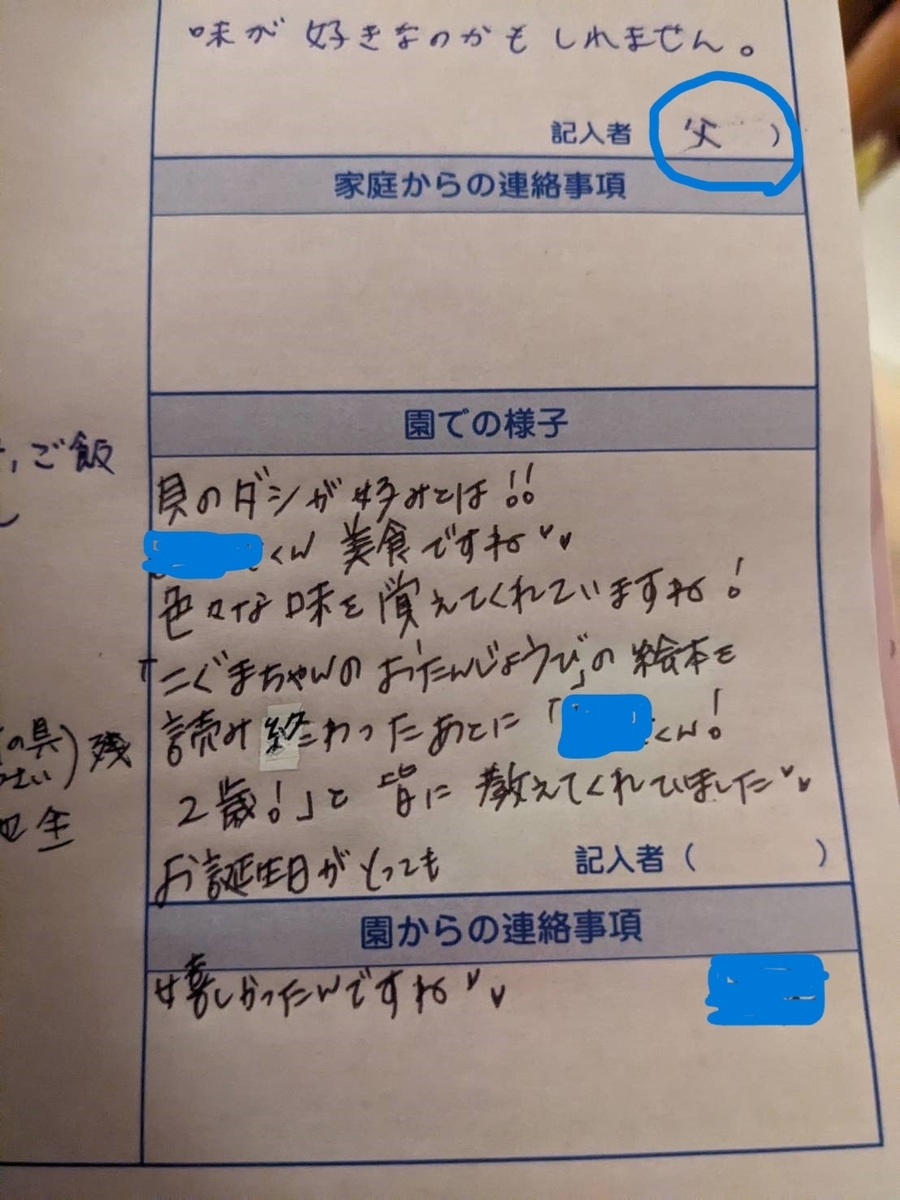 味が好きなのかもしれません。
記入者 父 )
家庭からの連絡事項
園での様子
, ご飯
貝のダシが好みとは!!
くん 美食ですね♥♥
色々な味を覚えてくれていますね!
「こぐまちゃんのおたんじょうび」の絵本を
読み終わったあとに「 くん!
の具
残
2歳!」と皆に教えてくれていました♥♥
お誕生日がとっても
記入者( )
園からの連絡事項
嬉しかったんですね♥♥